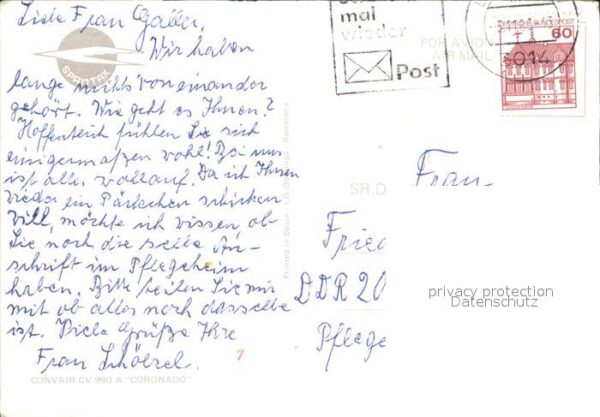 Liebe Frau Galler,
Wir haben
lange nichts von einander
gehört. Wie geht es Ihnen?
Hoffentlich fühlen Sie sich
einigermaßen wohl! Bei uns
ist alles vollauf. Da ich Ihnen
wieder ein Päckchen schicken
will, möchte ich wissen, ob
Sie noch die selbe An-
schrift im Pflegeheim
haben. Bitte teilen Sie mir
mit ob alles noch dasselbe
ist. Viele Grüße Ihre
Frau
SPANTAX
CONVAIR CV 990 A "CORONADO"
7
Printed in Spain
Barcelona
mal
wieder
Post
PAR AVION
AIR MAIL
DEUTSCHE BUNDESPOST
60
6014
SR.D
Frau
Fried
DDR 20
Pflege
privacy protection
Datenschutz